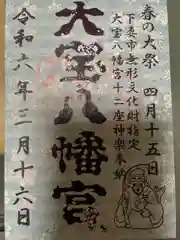 春の大祭　四月十五日
下妻市無形文化財指定
大宝八幡宮十二座神楽奉納
大宝八幡宮
令和六年三月十六日